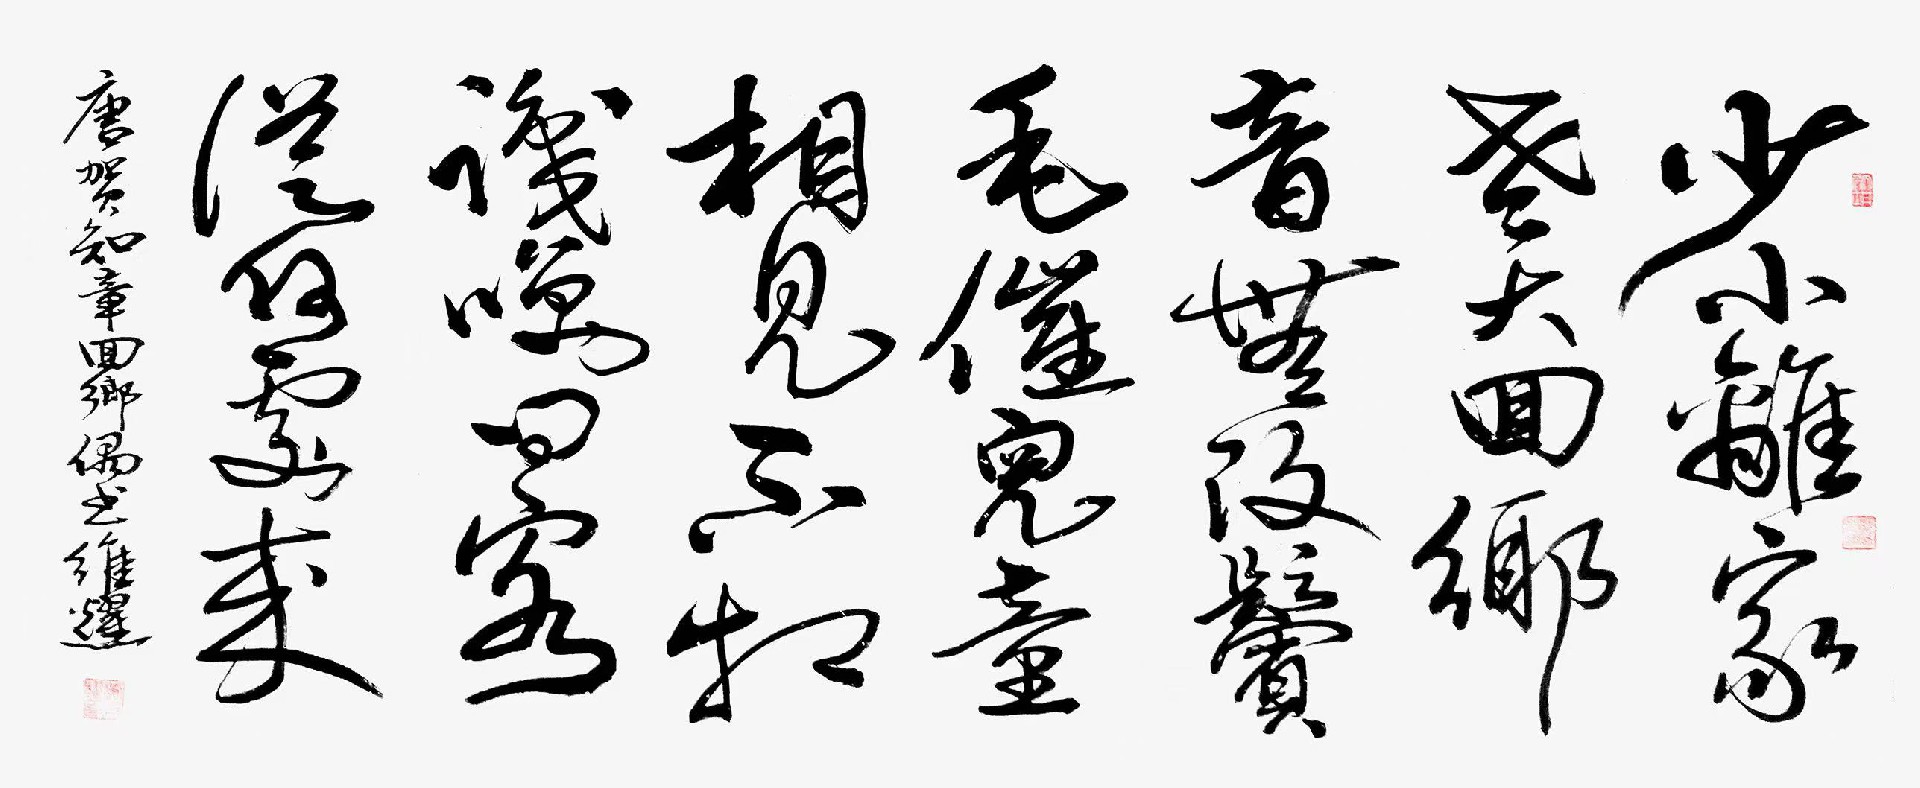 少小離家
老大回鄉
音無改鬢
毛催兒童
相見不相
識笑問客
從何處來
唐賀知章回鄉偶书維